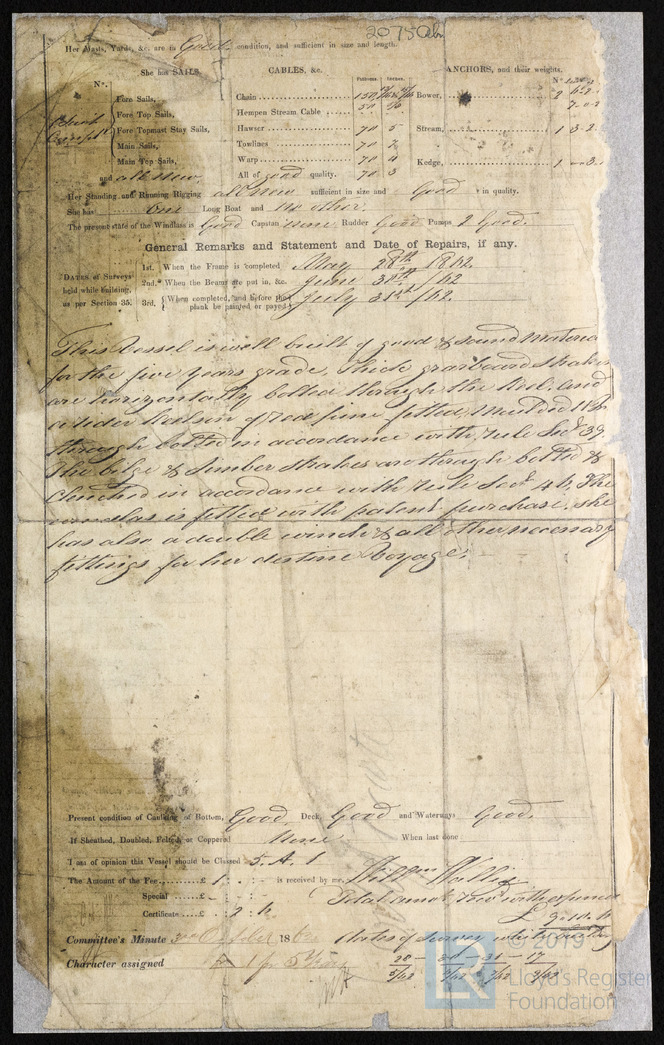 Her Masts, Yards, &c. are in Good condition, and sufficient in size and length.
She has SAILS. CABLES, &c. ANCHORS, and their weights.
No. Fathoms. Inches. No.
Fore Sails, Chain 150 Bower, 2
Fore Top Sails, Hempen Stream Cable 50
Fore Topmast Stay Sails, Hawser 70 5 Stream, 1 3-2
Main Sails, Towlines 70
Main Top Sails, Warp 70 4 Kedge, 1
and all new. All of good quality. 70 3
Her Standing and Running Rigging all new sufficient in size and Good in quality.
She has One Long Boat and no other.
The present state of the Windlass is Good Capstan None Rudder Good Pumps 2 Good.
General Remarks and Statement and Date of Repairs, if any.
DATES of Surveys held while building, as per Section 35.
1st. When the Frame is completed May 28th 1862.
2nd. When the Beams are put in, &c. June /62
3rd. When completed, and before the plank be painted or payed July 31st /62.
This Vessel is well built of good & sound Material
for the five years grade. Thick garboard strakes
are horizontally bolted through the Keel. And
a rider Keelson of red pine fitted,
through bolted in accordance with rule Sect 39.
The bilge & limber strakes are through bolted &
Clenched in accordance with rule Sect 46. The
windlas is fitted with patent purchase. she
has also a double winch & all other necessary
fittings for her destine Voyage.
Present condition of Caulking of Bottom, Good. Deck, Good and Waterways Good.
If Sheathed, Doubled, Felted, or Coppered None When last done
I am of opinion this Vessel should be Classed 5. A. 1
The Amount of the Fee £ 1 : - : - is received by me,
Special £ - : - : -
Certificate £ - : 2 : 6.
Committee's Minute 3rd October 18
Character assigned A 1 for 5 Years
© 2019
Lloyd's Register
Foundation